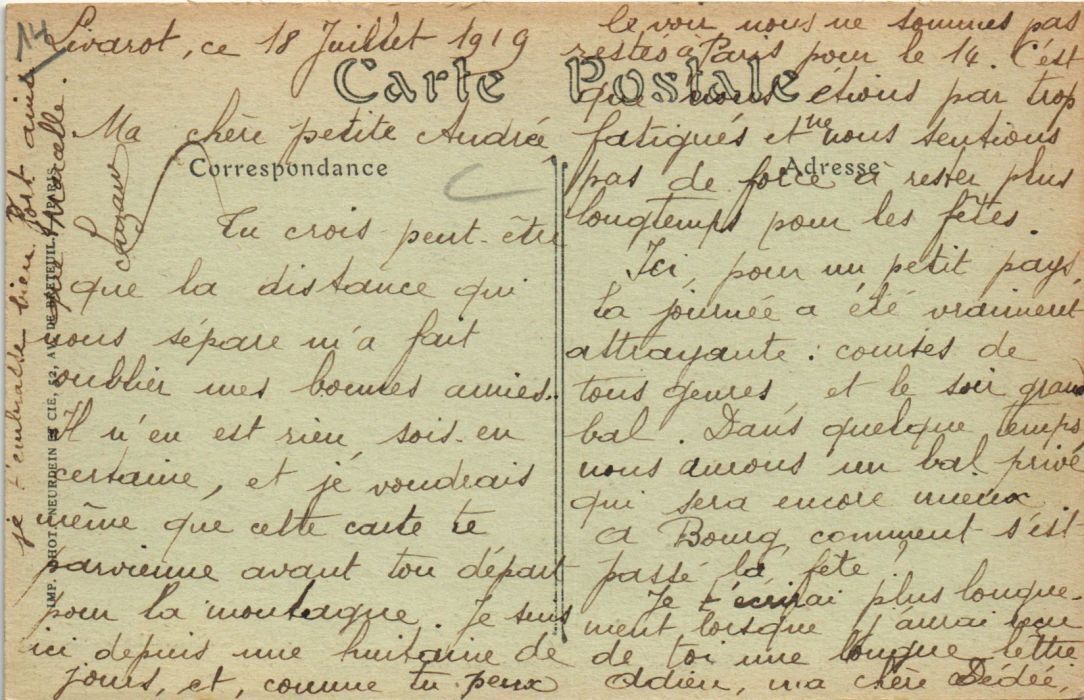 14
Livarot, ce 18 Juillet 1919
Carte Postale
Correspondance
Adresse
Ma chère petite Andrée,
Tu crois peut-être
que la distance qui
nous sépare m'a fait
oublier mes bonnes amies.
Il n'en est rien sois-en
certaine, et je voudrais
même que cette carte te
parvienne avant ton départ
pour la montagne. Je suis
ici depuis une huitaine de
jours, et, comme tu peux
le voir nous ne sommes pas
restés à Paris pour le 14. C'est
que nous étions par trop
fatigués et ne nous sentions
pas de force à rester plus
longtemps pour les fêtes.
Ici, pour un petit pays,
la journée a été vraiment
attrayante : courses de
tous genres, et le soir grand
bal. Dans quelque temps
nous aurons un bal privé
qui sera encore mieux.
A Bourg, comment s'est
passé la fête ?
Je t'écrirai plus longue-
ment lorsque j'aurai reçu
de toi une longue lettre
Adieu, ma chère Dédée,
je t'embrasse bien fort ainsi
que Marcelle.
Suzanne
IMP. PHOT. NEURDEIN ET CIE, 52, AV. DE BRETEUIL, PARIS